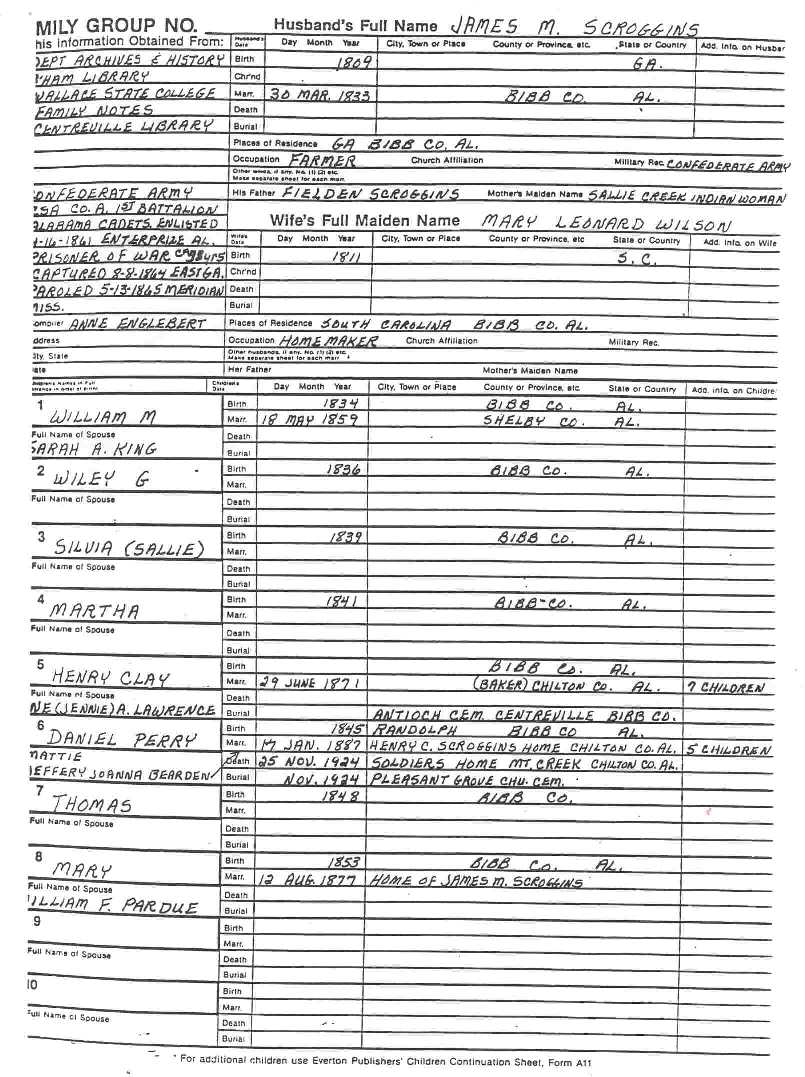 MILY GROUP NO. Husband's Full Name JAMES M. SCROGGINS
his Information Obtained From: Husband's Data Day Month Year City, Town or Place County or Province, etc. State or Country Add. Info. on Husban
DEPT ARCHIVES & HISTORY Birth 1809 GA.
HAM LIBRARY Chr'nd
WALLACE STATE COLLEGE Marr. 30 MAR. 1833 BIBB CO. AL.
FAMILY NOTES Death
CENTREVILLE LIBRARY Burial
Places of Residence GA BIBB CO. AL.
Occupation FARMER Church Affiliation Military Rec. CONFEDERATE ARMY
Other wives, if any. No. (1) (2) etc.
Make separate sheet for each marr.
ONFEDERATE ARMY His Father FIELDEN SCROGGINS Mother's Maiden Name SALLIE CREEK INDIAN WOMAN
CSA CO. A. 1ST BATTALION
ALABAMA CADETS, ENLISTED Wife's Full Maiden Name MARY LEONARD WILSON
-16-1861 ENTERPRIZE AL. Wife's Data Day Month Year City, Town or Place County or Province, etc State or Country Add. Info. on Wife
PRISONER OF WAR Birth 1811 S.C.
CAPTURED 8-8-1864 EAST GA. Chr'nd
PAROLED 5-13-1865 MERIDIAN Death
MISS. Burial
ompiler ANNE ENGLEBERT Places of Residence SOUTH CAROLINA BIBB CO. AL.
ddress Occupation HOMEMAKER Church Affiliation Military Rec.
ity, State Other husbands, if any. No. (1) (2) etc.
Make separate sheet for each marr.
ate Her Father Mother's Maiden Name
Children's Names in Full Children's Data Day Month Year City, Town or Place County or Province, etc. State or Country Add. Info. on Childre
1 Birth 1834 BIBB CO. AL.
WILLIAM M Marr. 18 MAY 1859 SHELBY CO. AL.
Full Name of Spouse Death
SARAH A. KING Burial
2 WILEY G Birth 1836 BIBB CO. AL.
Marr.
Full Name of Spouse Death
Burial
3 SILVIA (SALLIE) Birth 1839 BIBB CO. AL.
Marr.
Full Name of Spouse Death
Burial
4 MARTHA Birth 1841 BIBB-CO. AL.
Marr.
Full Name of Spouse Death
Burial
5 Birth BIBB CO. AL.
HENRY CLAY Marr. 29 JUNE 1871 (BAKER) CHILTON CO. AL. 7 CHILDREN
Full Name of Spouse Death
NE (JENNIE) A. LAWRENCE Burial ANTIOCH CEM. CENTREVILLE BIBB CO.
6 Birth 1845 RANDOLPH BIBB CO AL.
DANIEL PERRY Marr. 17 JAN. 1887 HENRY C. SCROGGINS HOME CHILTON CO. AL. 5 CHILDREN
MATTIE Death 25 NOV. 1924 SOLDIERS HOME MT. CREEK CHILTON CO. AL.
JEFFERY JOANNA BEARDEN Burial NOV. 1924 PLEASANT GROVE CHU. CEM.
7 Birth 1848 BIBB CO.
THOMAS Marr.
Full Name of Spouse Death
Burial
8 Birth 1853 BIBB CO. AL.
MARY Marr. 12 AUG. 1877 HOME OF JAMES M. SCROGGINS
Full Name of Spouse Death
WILLIAM F. PARDUE Burial
9 Birth
Marr.
Full Name of Spouse Death
Burial
10 Birth
Marr.
Full Name of Spouse Death
Burial
* For additional children use Everton Publishers' Children Continuation Sheet, Form A11